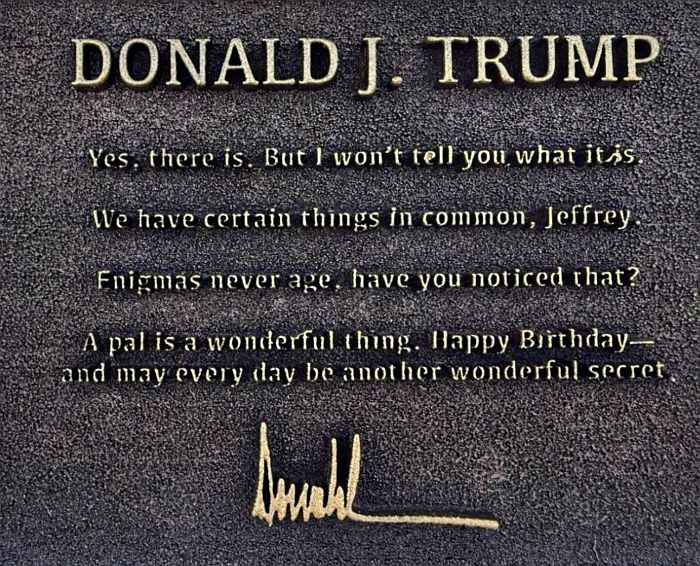 DONALD J. TRUMP
Yes, there is. But I won't tell you what it is.
We have certain things in common, Jeffrey.
Enigmas never age, have you noticed that?
A pal is a wonderful thing. Happy Birthday—
and may every day be another wonderful secret.
Donald